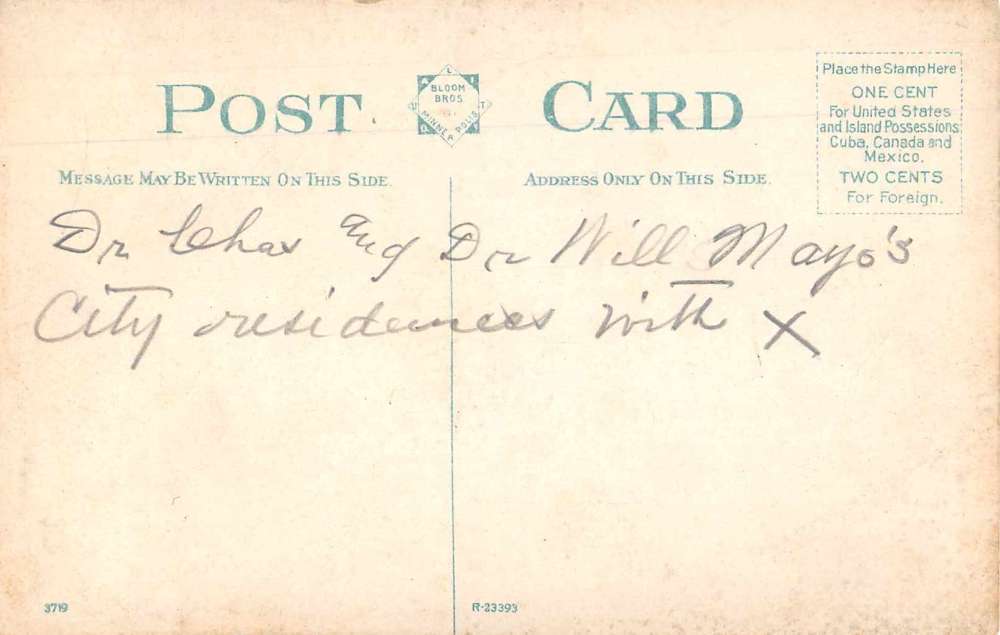 POST CARD
ALITUO
BLOOM
BROS.
MINNEAPOLIS
Place the Stamp Here
ONE CENT
For United States
and Island Possessions
Cuba, Canada and
Mexico.
TWO CENTS
For Foreign.
MESSAGE MAY BE WRITTEN ON THIS SIDE.
ADDRESS ONLY ON THIS SIDE.
Dr Chas and Dr Will Mayo's
City residences with X
3719
R-23393